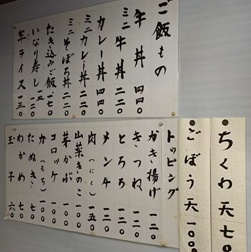 ご飯もの
牛丼 四四〇
ミニ牛丼 二二〇
カレー丼 四四〇
ミニカレー丼 二二〇
ミニそぼろ丼 二二〇
たき込みご飯 一七〇
いなり寿し 一二〇
トッピング
かき揚げ 一二〇
きつね 一二〇
とろろ 一二〇
メンチ 一二〇
肉 一五〇
山菜きのこ 一二〇
芽かぶ 一二〇
コロッケ
たぬき 七〇
わかめ 七〇
玉子 六〇
ごぼう天 一〇〇
ちくわ天 七〇